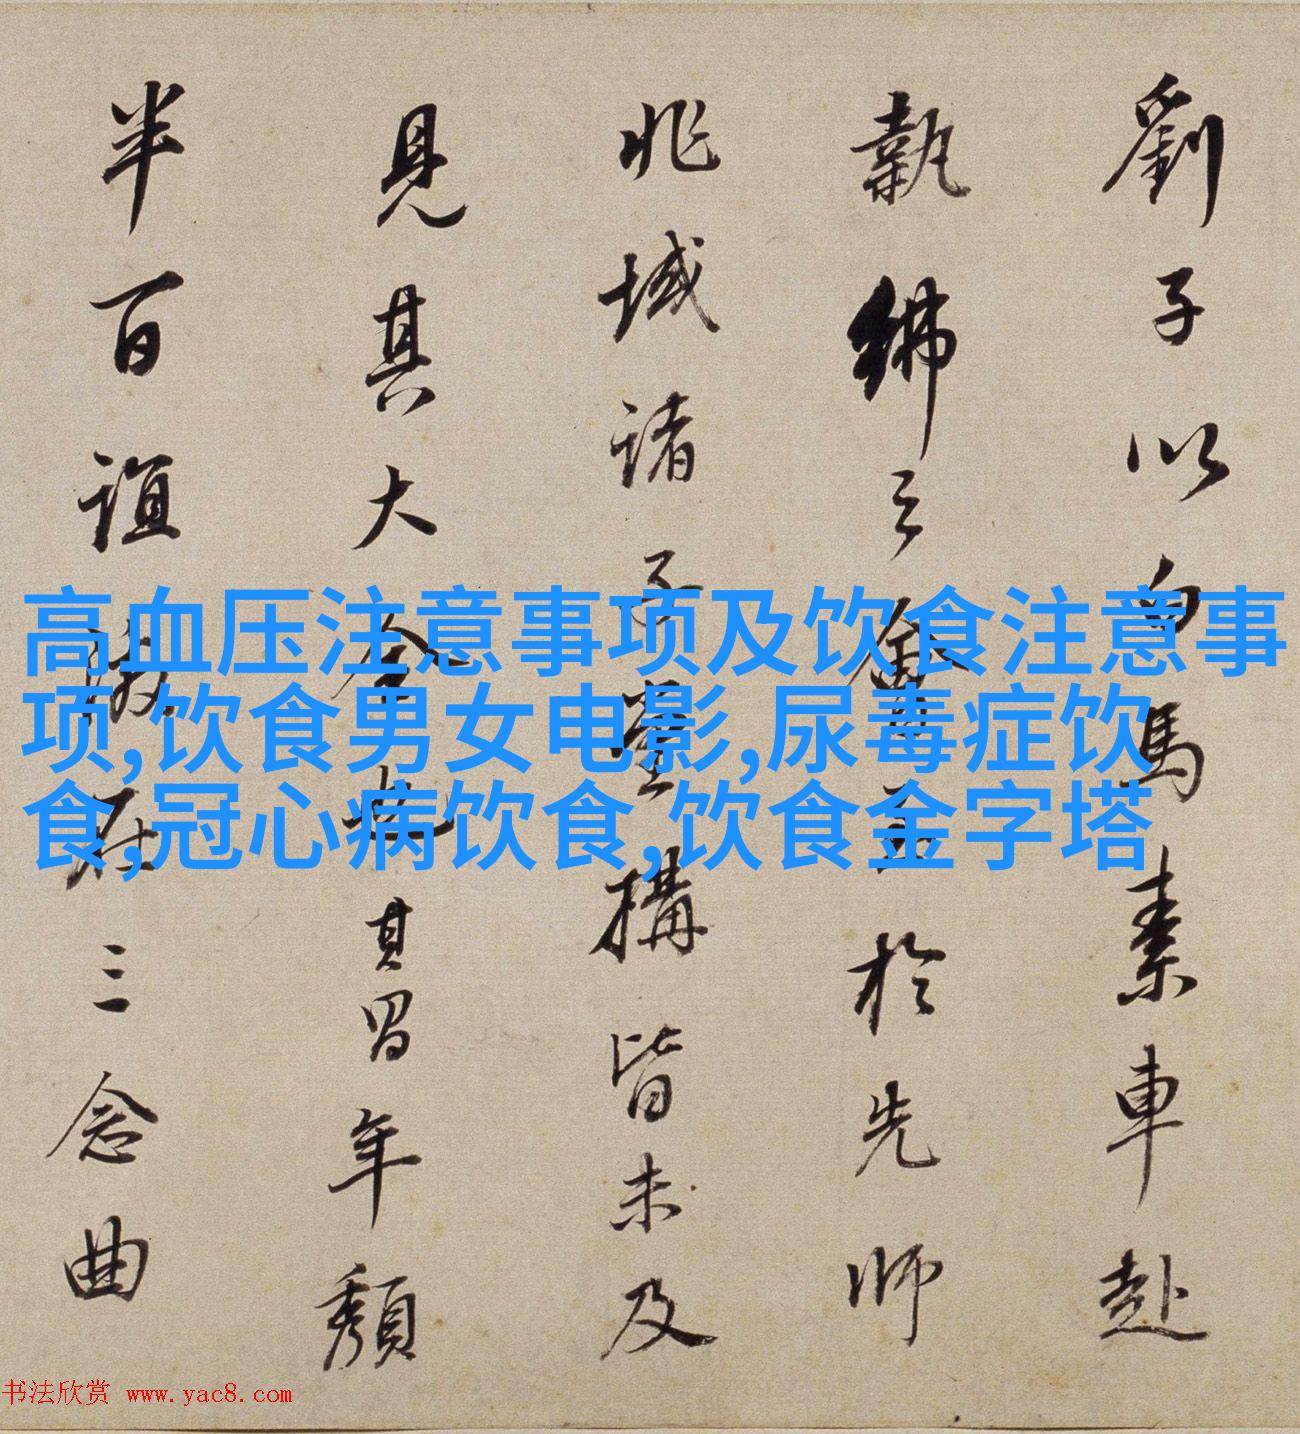 劉子以白馬素車赴
執紼之會至於先師
兆域諸子堂構皆未及
見其大全也其習年頽
半百誼
三念曲
高血压注意事项及饮食注意事
项,饮食男女电影,尿毒症饮
食,冠心病饮食,饮食金字塔
书法欣赏 www.yac8.com